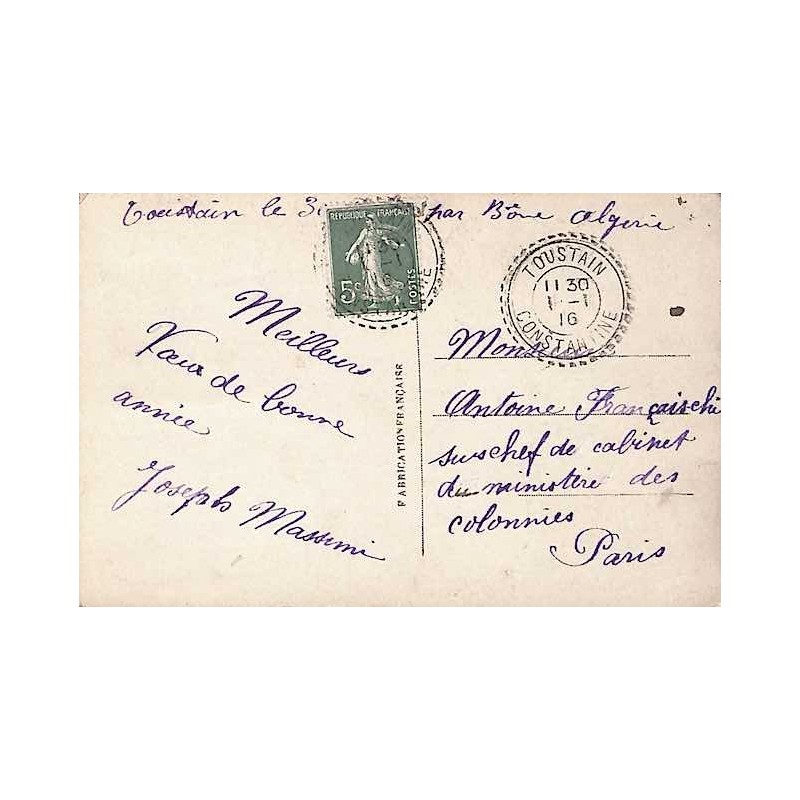 Toustain le 3 par Bône Algerie
REPUBLIQUE FRANÇAISE
5c
POSTES
TOUSTAIN
11 30
1 - 1
16
CONSTANTINE
Meilleurs
Vœux de bonne
année
Joseph Massimi
FABRICATION FRANÇAISE
Antoine Françaischi
suschef de cabinet
du ministère des
colonnies
Paris